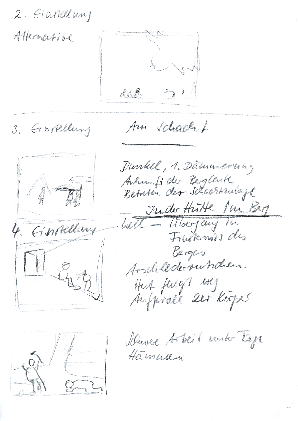 2. Einstellung
Alternative
3. Einstellung
Am Schacht
Dunkel, 1. Dämmerung
Ankunft der Bergleute
Betreten der
In der Hütte / Im Berg
4. Einstellung
hell — Übergang in
Finsternis des
Berges
Arschlederrutschen.
Hut fliegt weg
Aufprall der Körper
Arbeit unter Tage
Hämmern